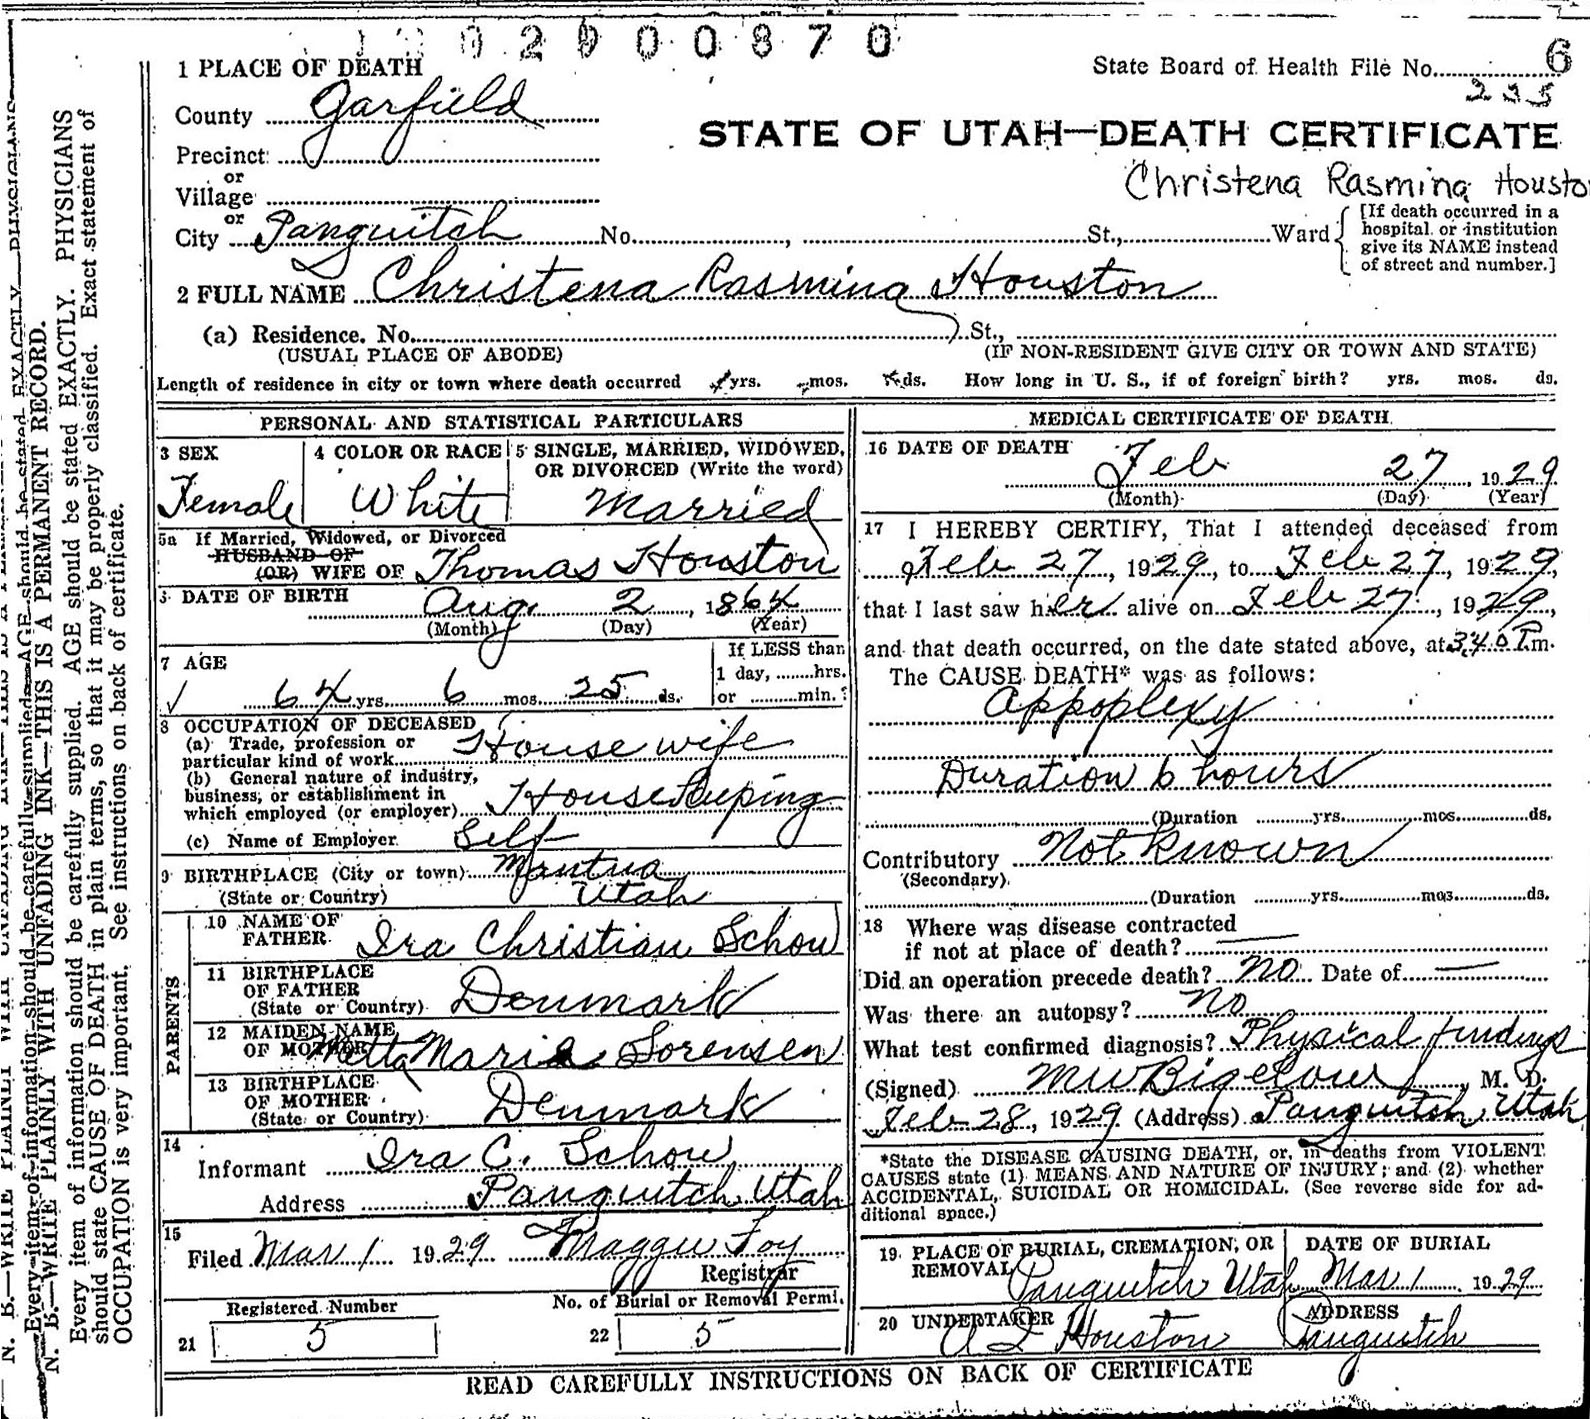 02900870
1 PLACE OF DEATH
State Board of Health File No. 6
235
County Garfield
STATE OF UTAH—DEATH CERTIFICATE
Precinct
or
Christena Rasmina Housto
Village
or
City Panguitch No. , St., Ward
[If death occurred in a hospital or institution give its NAME instead of street and number.]
2 FULL NAME Christena Rasmina Houston
(a) Residence. No. St.,
(USUAL PLACE OF ABODE) (IF NON-RESIDENT GIVE CITY OR TOWN AND STATE)
Length of residence in city or town where death occurred yrs. mos. ds. How long in U. S., if of foreign birth? yrs. mos. ds.
PERSONAL AND STATISTICAL PARTICULARS
3 SEX
Female
4 COLOR OR RACE
White
5 SINGLE, MARRIED, WIDOWED,
OR DIVORCED (Write the word)
Married
5a If Married, Widowed, or Divorced
HUSBAND OF
(OR) WIFE OF Thomas Houston
6 DATE OF BIRTH Aug 2, 1864
(Month) (Day) (Year)
7 AGE
64 yrs. 6 mos. 25 ds.
If LESS than
1 day, ........hrs.
or ..........min.?
8 OCCUPATION OF DECEASED
(a) Trade, profession or
particular kind of work House wife
(b) General nature of industry,
business, or establishment in
which employed (or employer) House Keeping
(c) Name of Employer Self
9 BIRTHPLACE (City or town) Mantua
(State or Country) Utah
PARENTS
10 NAME OF
FATHER Ira Christian Schow
11 BIRTHPLACE
OF FATHER
(State or Country) Denmark
12 MAIDEN NAME
OF MOTHER Matta Maria Sorensen
13 BIRTHPLACE
OF MOTHER
(State or Country) Denmark
14
Informant Ira C. Schow
Address Panguitch Utah
15
Filed Mar 1 1929 Maggie Foy
Registrar
Registered Number
21 5
No. of Burial or Removal Permi.
22 5
MEDICAL CERTIFICATE OF DEATH
16 DATE OF DEATH
Feb 27, 1929
(Month) (Day) (Year)
17 I HEREBY CERTIFY, That I attended deceased from
Feb 27, 1929, to Feb 27, 1929,
that I last saw her alive on Feb 27, 1929,
and that death occurred, on the date stated above, at 3:40 P.m.
The CAUSE DEATH* was as follows:
Appoplexy
Duration 6 hours
(Duration yrs. mos. ds.
Contributory Not Known
(Secondary)
(Duration yrs. mos. ds.
18 Where was disease contracted
if not at place of death? —
Did an operation precede death? no Date of —
Was there an autopsy? no
What test confirmed diagnosis? Physical findings
(Signed) M W Bigelow, M. D.
Feb 28, 1929 (Address) Panguitch, Utah
*State the DISEASE CAUSING DEATH, or, in deaths from VIOLENT
CAUSES state (1) MEANS AND NATURE OF INJURY; and (2) whether
ACCIDENTAL, SUICIDAL OR HOMICIDAL. (See reverse side for ad-
ditional space.)
19 PLACE OF BURIAL, CREMATION, OR
REMOVAL Panguitch Utah
DATE OF BURIAL
Mar 1 1929
20 UNDERTAKER
Houston
ADDRESS
Panguitch
READ CAREFULLY INSTRUCTIONS ON BACK OF CERTIFICATE
N. B.—WRITE PLAINLY WITH UNFADING INK—THIS IS A PERMANENT RECORD.
Every item of information should be carefully supplied. AGE should be stated EXACTLY. PHYSICIANS
should state CAUSE OF DEATH in plain terms, so that it may be properly classified. Exact statement of
OCCUPATION is very important. See instructions on back of certificate.